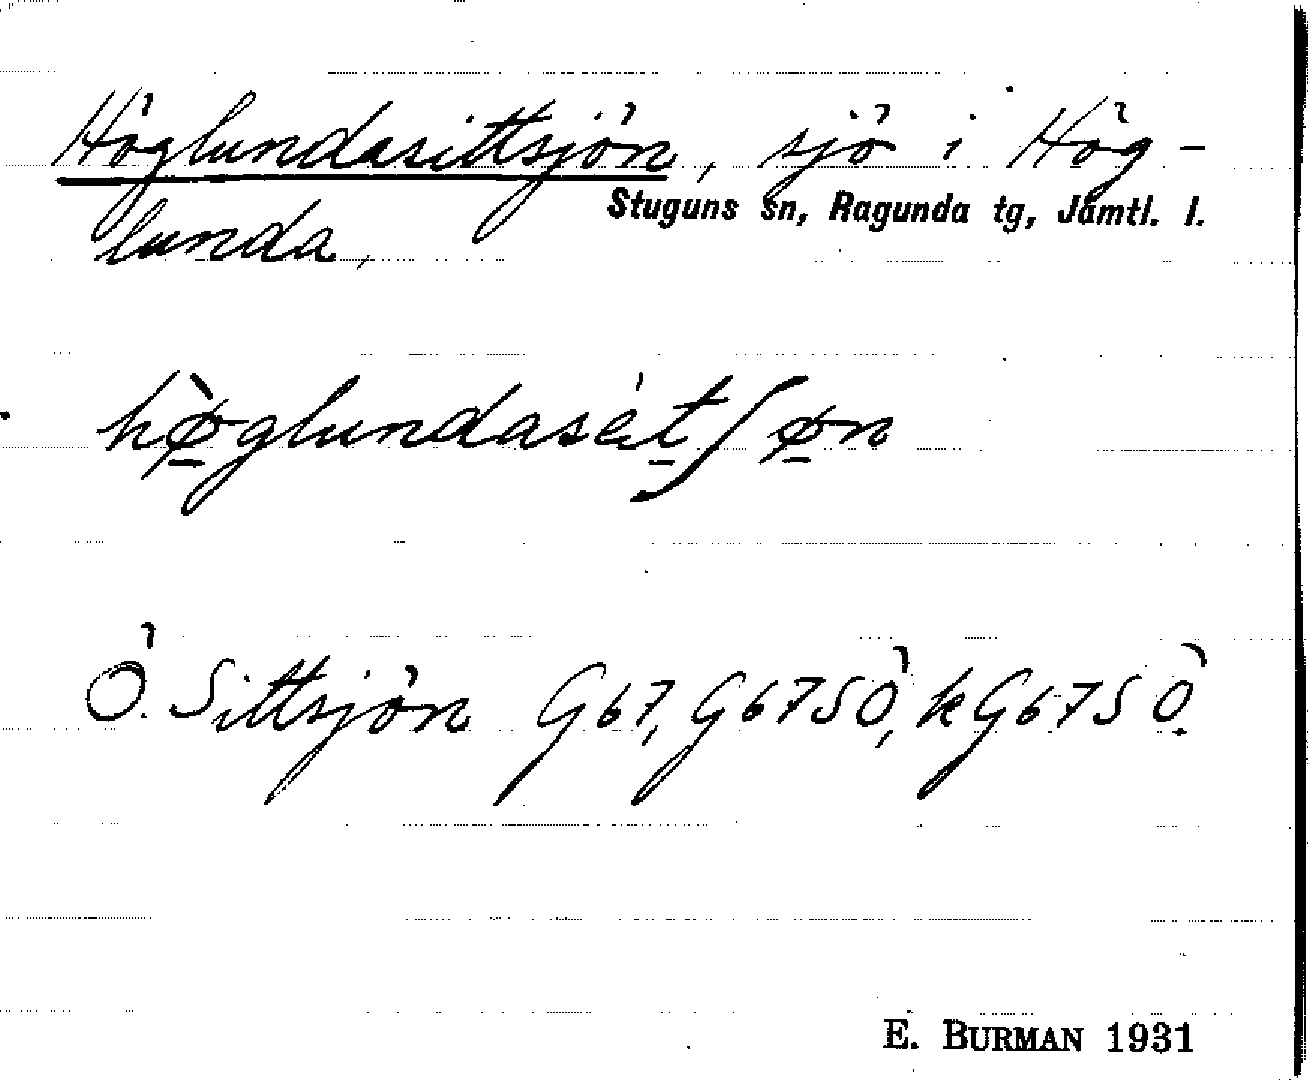 Höglundasittsjön, sjö i Hög-
Stuguns sn, Ragunda tg, Jämtl. l.
lunda,
hø̱̀glundasèt̠ʃø̱n
Ö. Sittsjön G67, G67SÖ, kG67SÖ.
E. BURMAN 1931